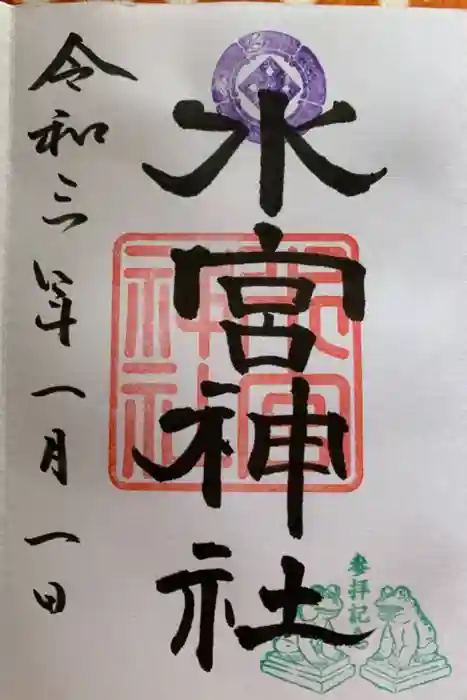 水宮神社
令和三年一月一日
水宮神社
参拝記念